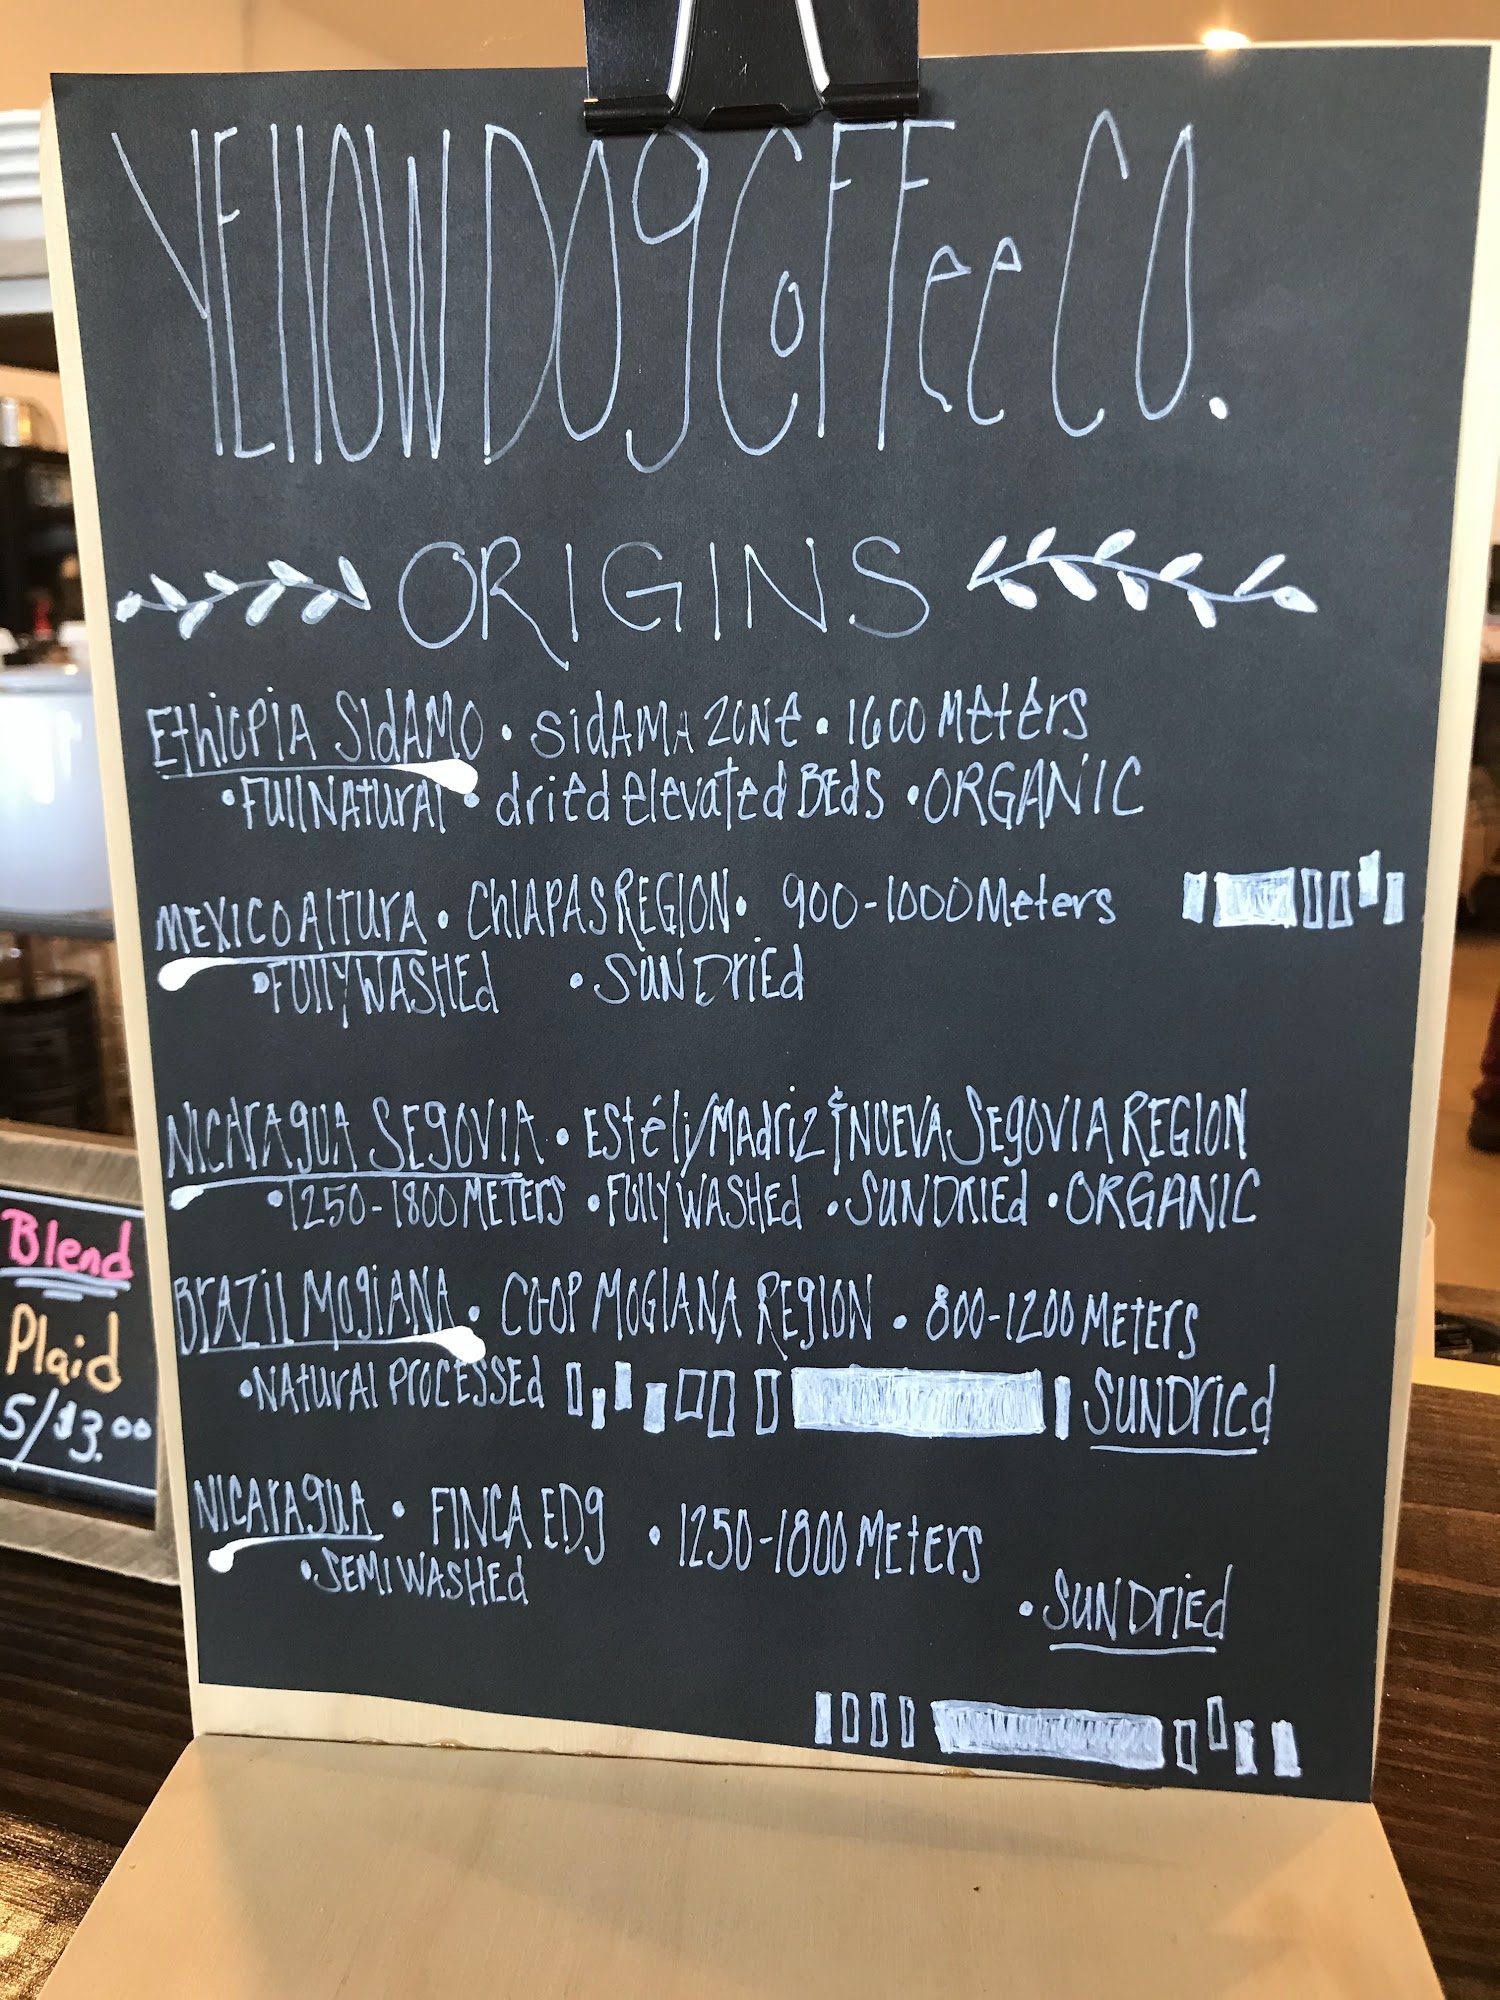 YELLOW DOG COFFee CO.
ORIGINS
Ethiopia SidAMO • SidAMA ZONe • 1600 Meters
• Full NAturAl • dried elevated BEds • ORGANIC
MEXICO AlturA • ChIAPAS REGION • 900-1000 Meters
• FUllY WASHEd • SUN DRIEd
NICArAgUA SEGOVIA • EStéli/MAdriz & NUEVA SEGOVIA REGION
• 1250-1800 METERS • FUllY WASHEd • SUN DRIEd • ORGANIC
BRAZIL MOgiANA • CO-OP MOGIANA REgION • 800-1200 METERS
• NAturAl PROCESSEd SUNDRIEd
NICArAgUA • FINCA EDg • 1250-1800 METERS
• SEMI WASHEd
• SUN DRIEd
Blend
Plaid
5/$3.00